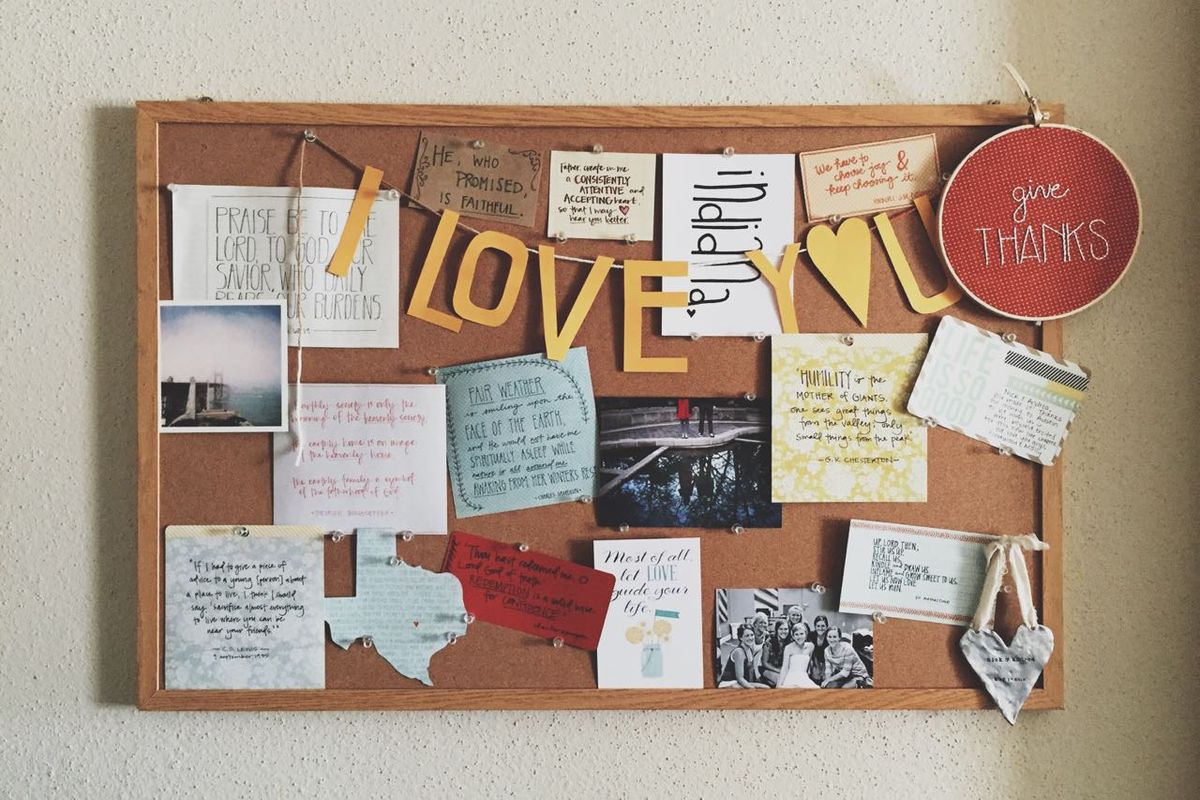 I LOVE Y U
PRAISE BE TO THE
LORD, TO GOD OUR
SAVIOR, WHO DAILY
BEARS OUR BURDENS
HE, WHO
PROMISED,
IS FAITHFUL.
Father, create in me
a CONSISTENTLY
ATTENTIVE and
ACCEPTING heart,
so that I may
hear you better.
indiana
We have to
choose joy &
keep choosing it.
give
THANKS
earthly society is only the
beginning of the heavenly society.
the earthly home is an image
of the heavenly home.
the earthly family a symbol
of the fatherhood of God.
FAIR WEATHER
is smiling upon the
FACE OF THE EARTH,
and He would not have me
SPIRITUALLY ASLEEP WHILE
nature is all around me
AWAKING FROM HER WINTERS RES
"HUMILITY is the
MOTHER of GIANTS.
One sees great things
from the valley; only
small things from the peak.
-G.K. CHESTERTON-
"If I had to give a piece of
advice to a young [person] about
a place to live, I think I should
say, 'sacrifice almost everything
to live where you can be
near your friends.'"
-C.S. LEWIS-
Thou hast redeemed me, O
Lord God of truth
REDEMPTION is a solid base
for CONFIDENCE."
Most of all,
let LOVE
guide your
life.
UP, LORD THEN,
STIR US UP,
RECALL US,
KINDLE and DRAW US
INFLAME and GROW SWEET TO US.
LET US NOW LOVE
LET US RUN.